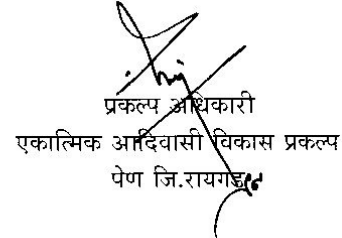 प्रकल्प अधिकारी
एकात्मिक आदिवासी विकास प्रकल्प
पेण जि.रायगड